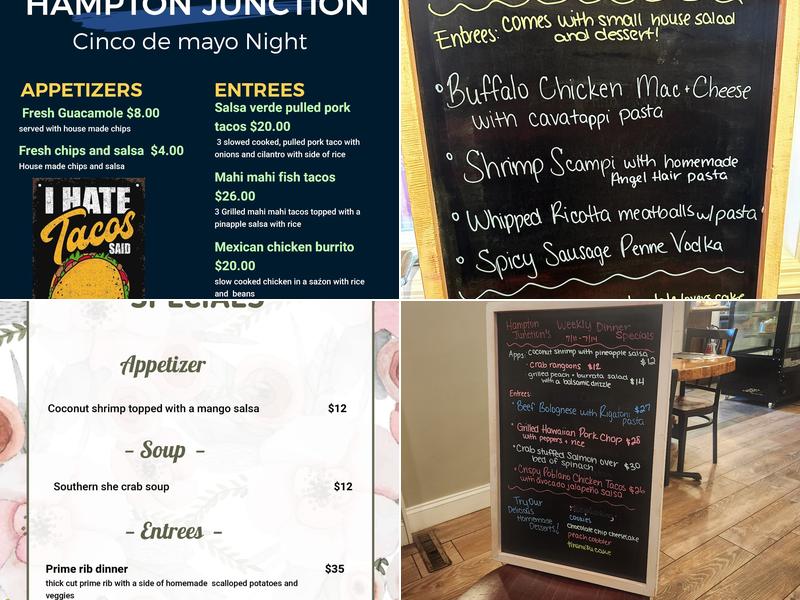 HAMPTON JUNCTION
Cinco de mayo Night
APPETIZERS
Fresh Guacamole $8.00
served with house made chips
Fresh chips and salsa $4.00
House made chips and salsa
I HATE
Tacos
SAID
ENTREES
Salsa verde pulled pork
tacos $20.00
3 slowed cooked, pulled pork taco with
onions and cilantro with side of rice
Mahi mahi fish tacos
$26.00
3 Grilled mahi mahi tacos topped with a
pinapple salsa with rice
Mexican chicken burrito
$20.00
slow cooked chicken in a sazón with rice
and beans
Entrees: comes with small house salad
and dessert!
Buffalo Chicken Mac + Cheese
with cavatappi pasta
Shrimp Scampi with homemade
Angel Hair pasta
Whipped Ricotta meatballs w/ pasta
Spicy Sausage Penne Vodka
cake
SPECIALS
Appetizer
Coconut shrimp topped with a mango salsa $12
– Soup –
Southern she crab soup $12
– Entrees –
Prime rib dinner $35
thick cut prime rib with a side of homemade scalloped potatoes and
veggies
Hampton Weekly Dinner
Junction's 7/11-7/14 Specials
Apps: coconut shrimp with pineapple salsa
$12
crab rangoons $12
grilled peach + burrata salad
with a balsamic drizzle $14
Entrees:
Beef Bolognese with Rigatoni $27
pasta
Grilled Hawaiian Pork Chop $28
with peppers + rice
Crab stuffed Salmon over $30
bed of spinach
Crispy Poblano Chicken Tacos $26
with avocado jalapeño salsa
Try Our
Delicious
Homemade
Desserts!
cookies
chocolate chip cheesecake
peach cobbler
tiramisu cake